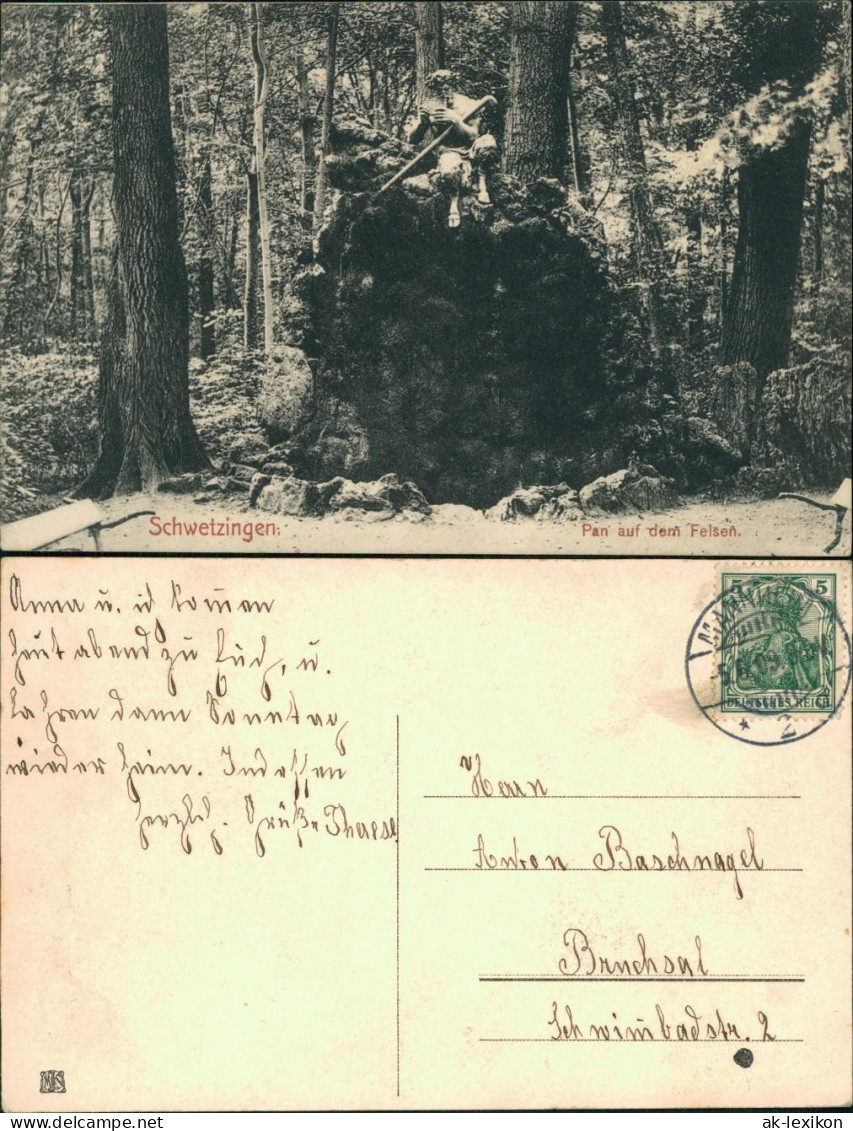 Schwetzingen.
Pan auf dem Felsen.
Anna u. ich kommen
heut abend zu Euch, u.
fahren dann Sonntag
wieder heim. Indessen
herzlch. Grüße Therese
5 5
DEUTSCHES REICH
* 2
Herrn
Anton Baschnagel
Bruchsal
Schwimbadstr. 2
MS
oldthing
ak-lexikon